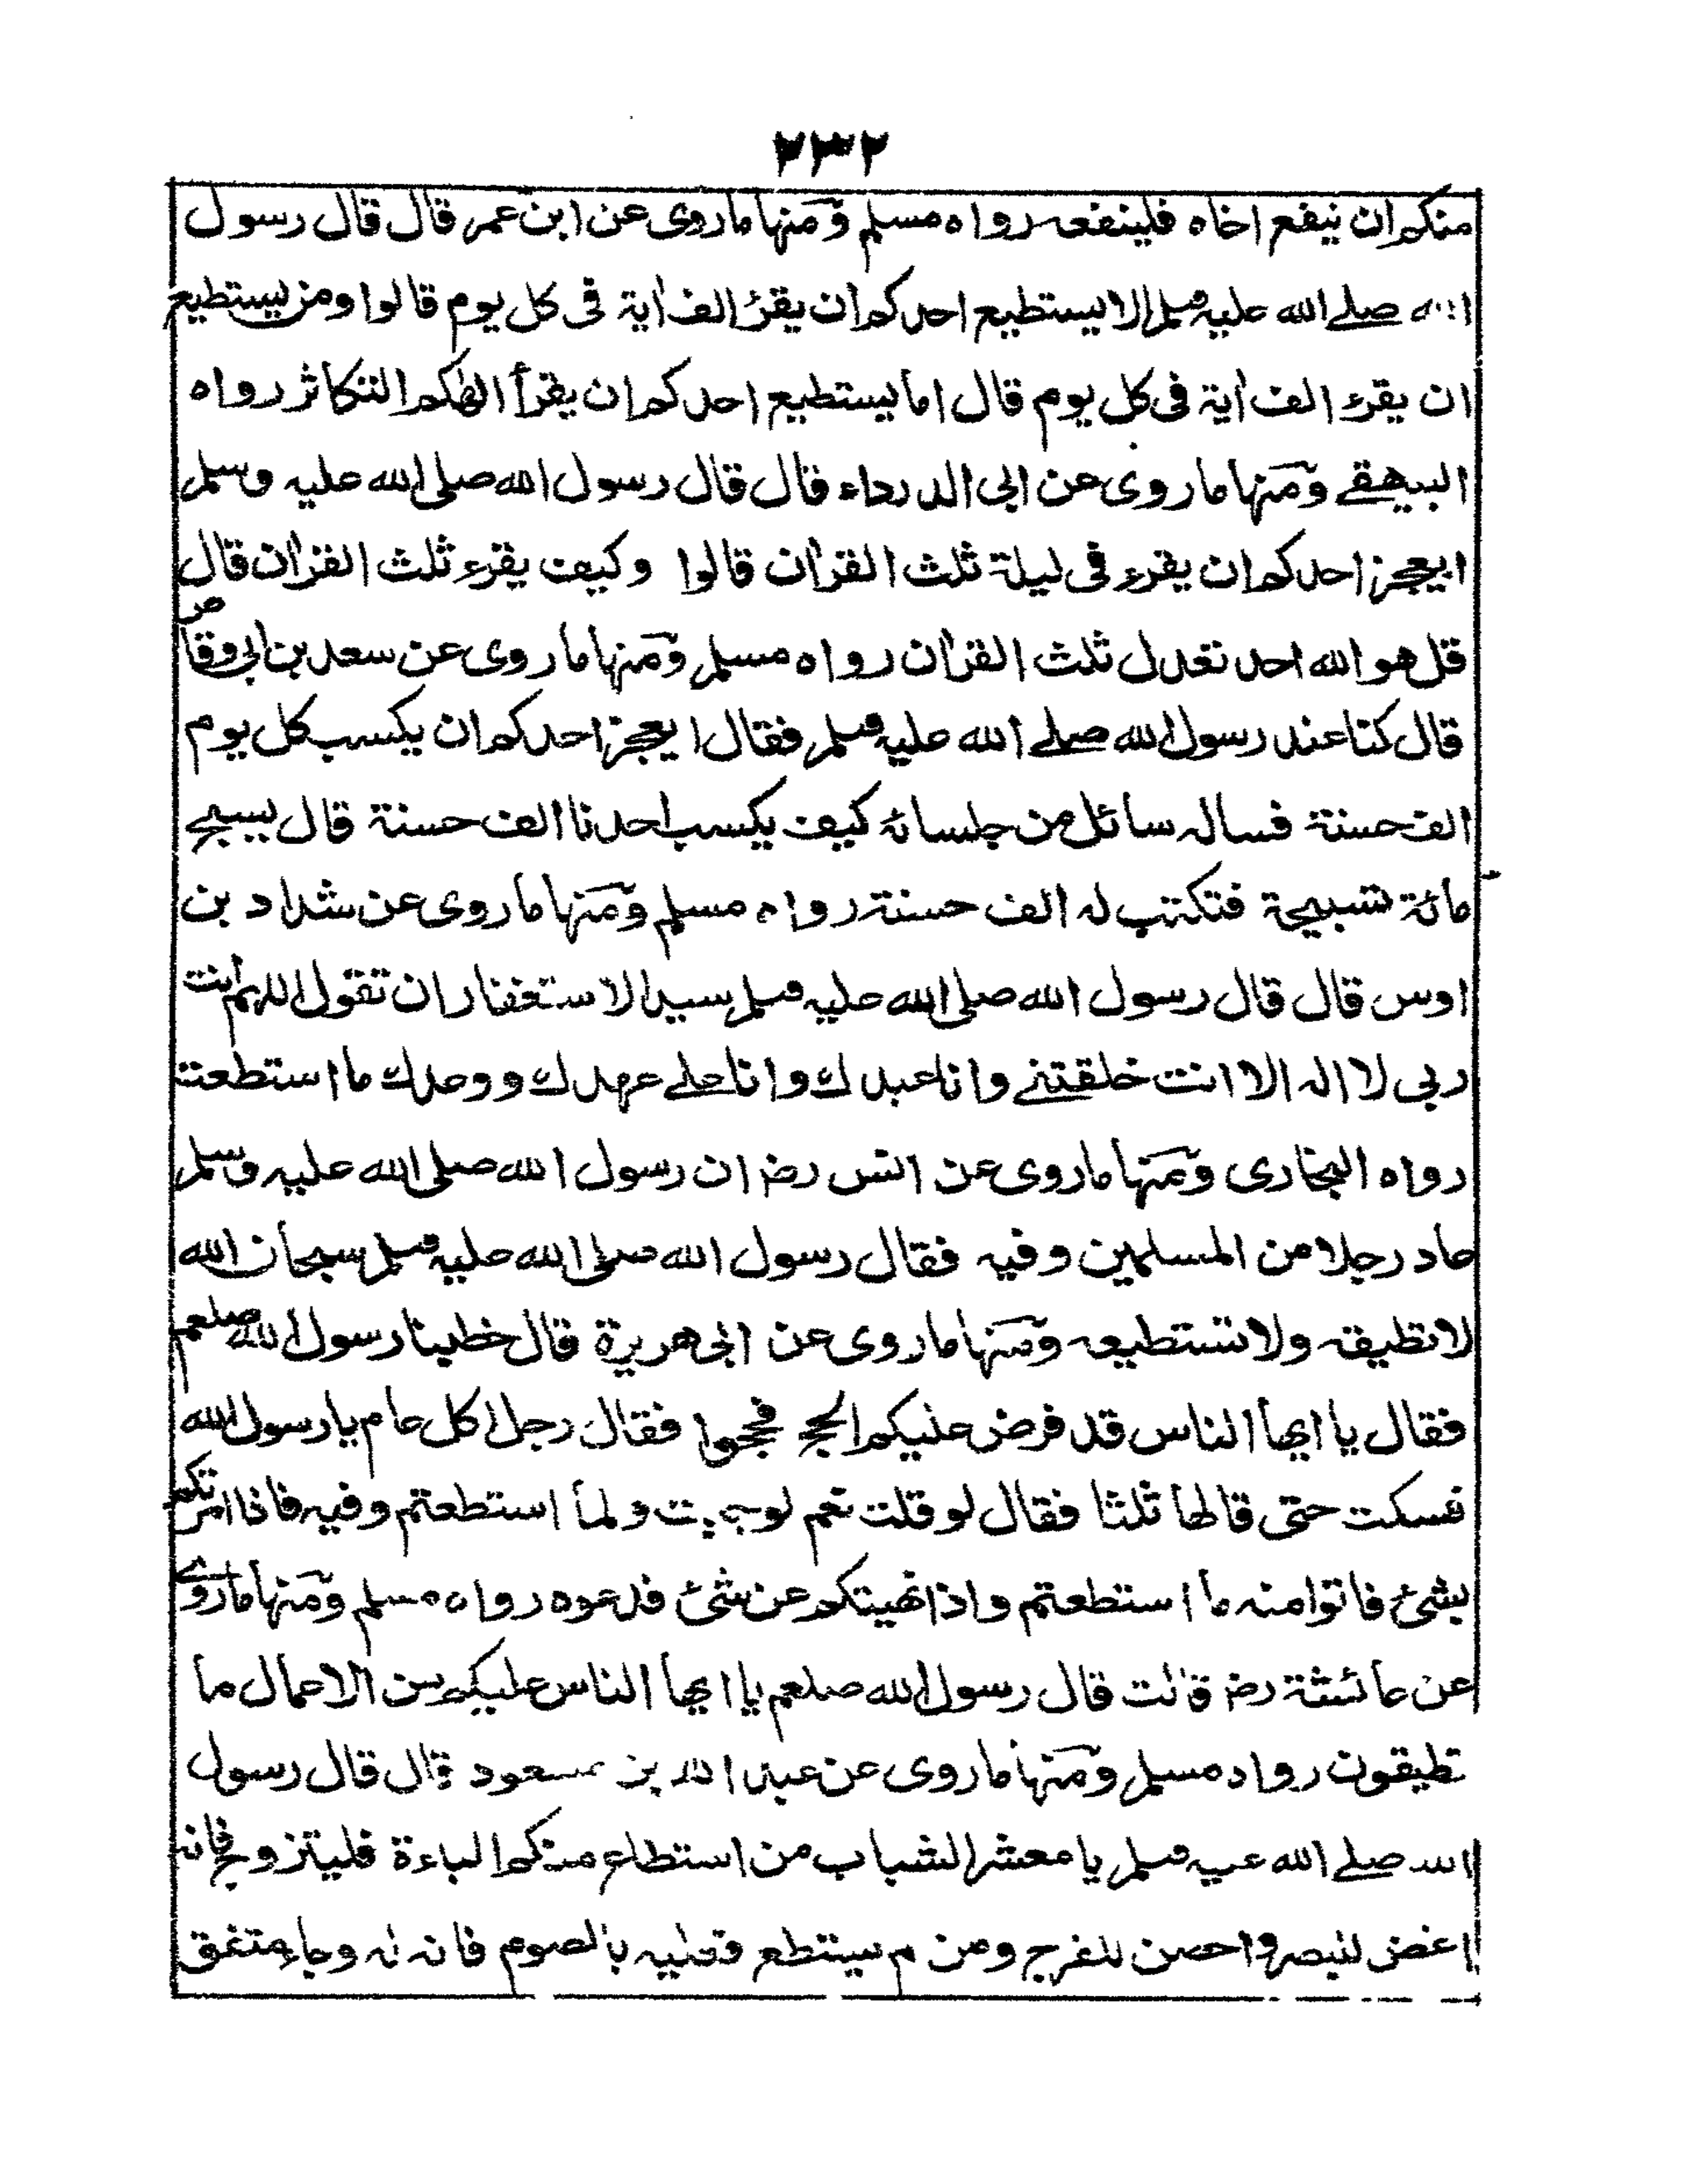 ٢٣٢
منكم ان ينفع اخاه فلينفعه رواه مسلم ومنها ما روى عن ابن عمر قال قال رسول
الله صلے الله عليه وسلم الا يستطيع احدكم ان يقرأ الف اٰية فى كل يوم قالوا ومن يستطيع
ان يقرء الف اٰية فى كل يوم قال اما يستطيع احدكم ان يقرأ الهٰكم التكاثر رواه
البيهقے ومنها ما روى عن ابى الدرداء قال قال رسول الله صلى الله عليه وسلم
ايعجز احدكم ان يقرء فى ليلة ثلث القراٰن قالوا وكيف يقرء ثلث القراٰن قال
قل هو الله احد تعدل ثلث القراٰن رواه مسلم ومنها ما روى عن سعد بن ابى وقاص
قال كنا عند رسول الله صلے الله عليه وسلم فقال ايعجز احدكم ان يكسب كل يوم
الف حسنة فساله سائل من جلسائه كيف يكسب احدنا الف حسنة قال يسبح
مائة تسبيحة فتكتب له الف حسنة رواه مسلم ومنها ما روى عن شداد بن
اوس قال قال رسول الله صلى الله عليه وسلم سيد الاستغفار ان تقول اللهم انت
ربى لا اله الا انت خلقتنے وانا عبدك وانا علے عهدك ووعدك ما استطعت
رواه البخارى ومنها ما روى عن انس رض ان رسول الله صلى الله عليه وسلم
عاد رجلا من المسلمين وفيه فقال رسول الله صلى الله عليه وسلم سبحان الله
لا تطيقه ولا تستطيعه ومنها ما روى عن ابى هريرة قال خطبنا رسول الله صلعم
فقال يا ايها الناس قد فرض عليكم الحج فحجوا فقال رجل اكل عام يا رسول الله
فسكت حتى قالها ثلثا فقال لو قلت نعم لوجبت ولما استطعتم وفيه فاذا امرتكم
بشئ فاتوا منه ما استطعتم واذا نهيتكم عن شئ فدعوه رواه مسلم ومنها ما روے
عن عائشة رض قالت قال رسول الله صلعم يا ايها الناس عليكم من الاعمال ما
تطيقون رواه مسلم ومنها ما روى عن عبد الله بن مسعود قال قال رسول
الله صلے الله عليه وسلم يا معشر الشباب من استطاع منكم الباءة فليتزوج فانه
اغض للبصر واحصن للفرج ومن لم يستطع فعليه بالصوم فانه له وجاء متفق